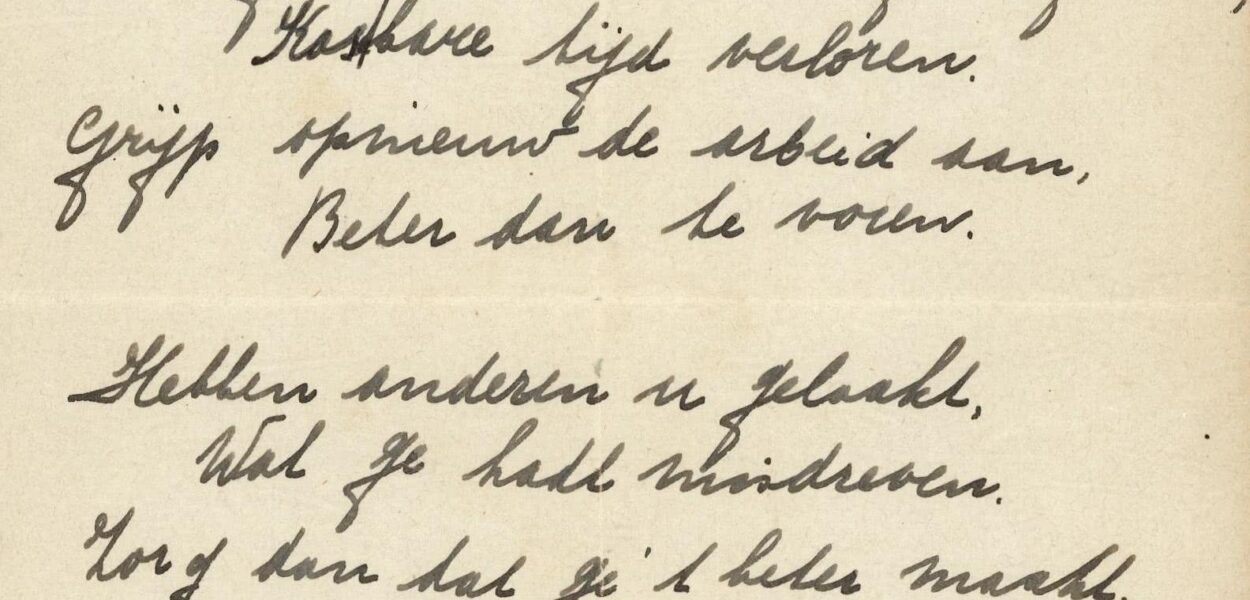 Kostbare tijd verloren.
Grijp opnieuw de arbeid aan,
Beter dan te voren.
Hebben anderen u gelaakt,
Wat ge hadt misdreven.
Zorg dan dat ge 't beter maakt.